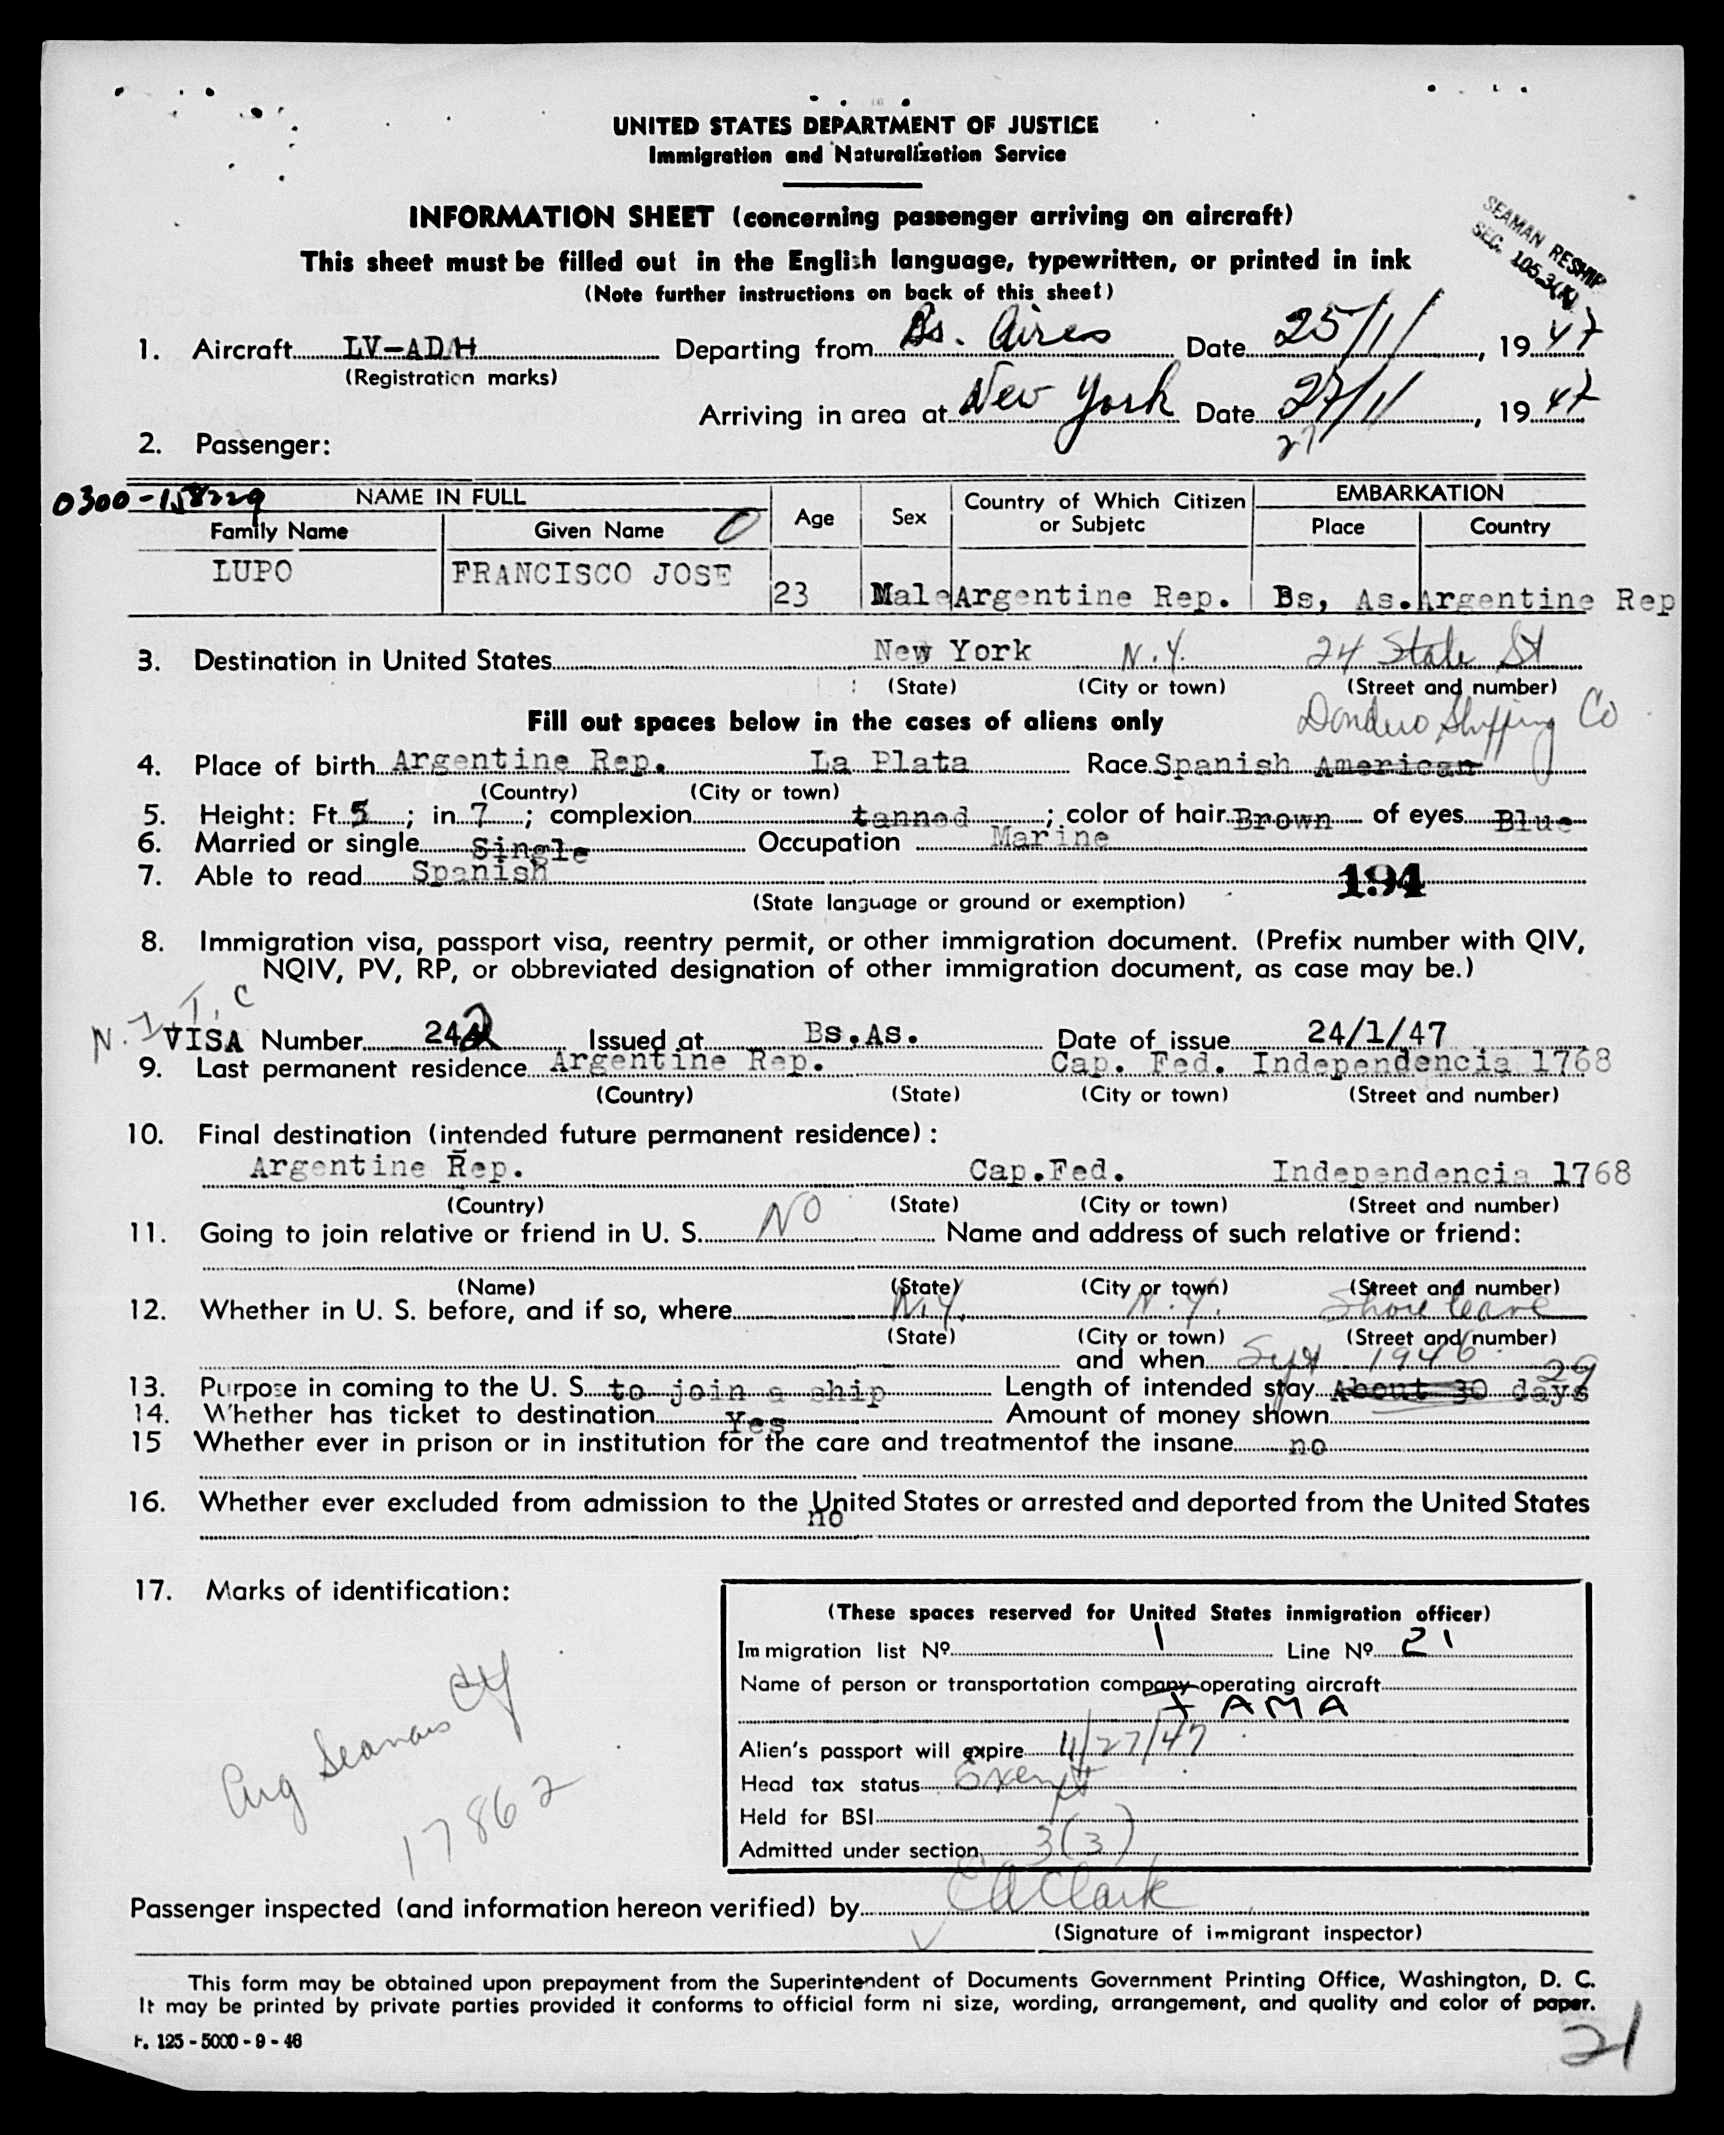 UNITED STATES DEPARTMENT OF JUSTICE
Immigration and Naturalization Service
INFORMATION SHEET (concerning passenger arriving on aircraft)
SEAMAN RESHIP
SEC. 105.3(K)
This sheet must be filled out in the English language, typewritten, or printed in ink
(Note further instructions on back of this sheet)
1. Aircraft LV-ADH Departing from Bs. Aires Date 25/1/, 1947
(Registration marks)
Arriving in area at New York Date 27/1/, 1947
27
2. Passenger:
0300-158229 NAME IN FULL Age Sex Country of Which Citizen or Subjetc EMBARKATION
Family Name Given Name 0 Place Country
LUPO FRANCISCO JOSE 23 Male Argentine Rep. Bs, As. Argentine Rep
3. Destination in United States New York N.Y. 24 State St
(State) (City or town) (Street and number)
Fill out spaces below in the cases of aliens only Dondero Shipping Co
4. Place of birth Argentine Rep. La Plata Race Spanish American
(Country) (City or town)
5. Height: Ft. 5; in. 7; complexion tanned; color of hair Brown of eyes Blue
6. Married or single Single Occupation Marine
7. Able to read Spanish 194
(State language or ground or exemption)
8. Immigration visa, passport visa, reentry permit, or other immigration document. (Prefix number with QIV,
NQIV, PV, RP, or obbreviated designation of other immigration document, as case may be.)
VISA Number 242 Issued at Bs.As. Date of issue 24/1/47
9. Last permanent residence Argentine Rep. Cap. Fed. Independencia 1768
(Country) (State) (City or town) (Street and number)
10. Final destination (intended future permanent residence):
Argentine Rep. Cap.Fed. Independencia 1768
(Country) (State) (City or town) (Street and number)
11. Going to join relative or friend in U. S. NO Name and address of such relative or friend:
(Name) (State) (City or town) (Street and number)
12. Whether in U. S. before, and if so, where N.Y. N.Y. Shore leave
(State) (City or town) (Street and number)
and when Sept 1946
13. Purpose in coming to the U. S. to join a ship Length of intended stay About 30 days 29
14. Whether has ticket to destination Yes Amount of money shown
15 Whether ever in prison or in institution for the care and treatmentof the insane no
16. Whether ever excluded from admission to the United States or arrested and deported from the United States
no
17. Marks of identification:
(These spaces reserved for United States inmigration officer)
Immigration list Nº 1 Line Nº 21
Name of person or transportation company operating aircraft
FAMA
Alien's passport will expire 11/27/47
Head tax status Exempt
Held for BSI
Admitted under section 3(3)
Arg Seamans
17862
Passenger inspected (and information hereon verified) by E A Clark
(Signature of immigrant inspector)
This form may be obtained upon prepayment from the Superintendent of Documents Government Printing Office, Washington, D. C.
It may be printed by private parties provided it conforms to official form ni size, wording, arrangement, and quality and color of paper.
F. 125 - 5000 - 9 - 46
21